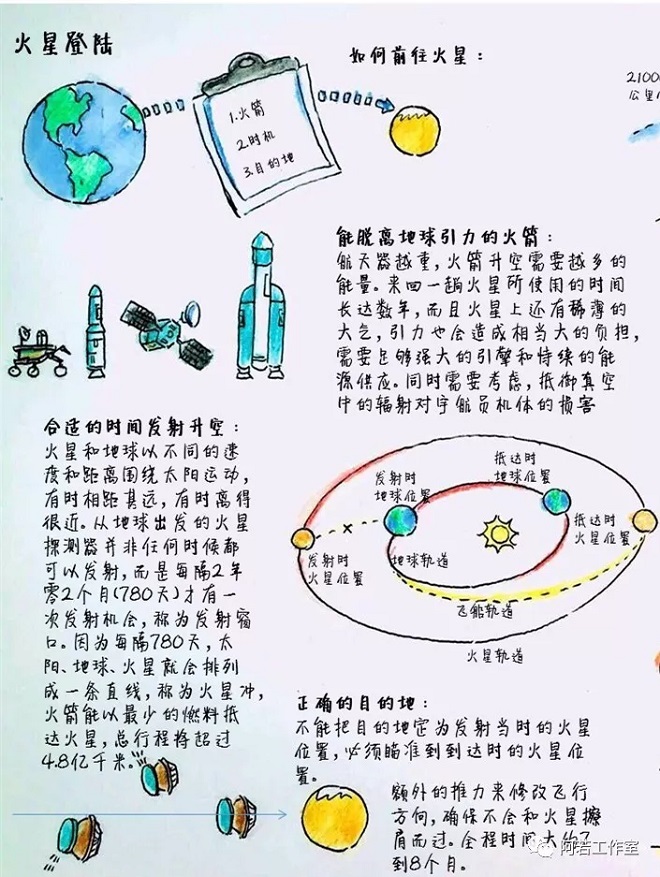 火星登陆
如何前往火星：
1.火箭
2.时机
3.目的地
2100
公里
能脱离地球引力的火箭：
航天器越重，火箭升空需要越多的
能量。来回一趟火星所使用的时间
长达数年，而且火星上还有稀薄的
大气，引力也会造成相当大的负担，
需要足够强大的引擎和持续的能
源供应。同时需要考虑，抵御真空
中的辐射对宇航员机体的损害
合适的时间发射升空：
火星和地球以不同的速
度和距离围绕太阳运动，
有时相距甚远，有时离得
很近。从地球出发的火星
探测器并非任何时候都
可以发射，而是每隔2年
零2个月(780天)才有一
次发射机会，称为发射窗
口。因为每隔780天，太
阳、地球、火星就会排列
成一条直线，称为火星冲，
火箭能以最少的燃料抵
达火星，总行程将超过
4.8亿千米。
抵达时
地球位置
发射时
地球位置
抵达时
火星位置
发射时
火星位置
地球轨道
飞船轨道
火星轨道
正确的目的地：
不能把目的地定为发射当时的火星
位置，必须瞄准到到达时的火星位
置。
额外的推力来修改飞行
方向，确保不会和火星擦
肩而过。全程时间大约7
到8个月。
阿若工作室